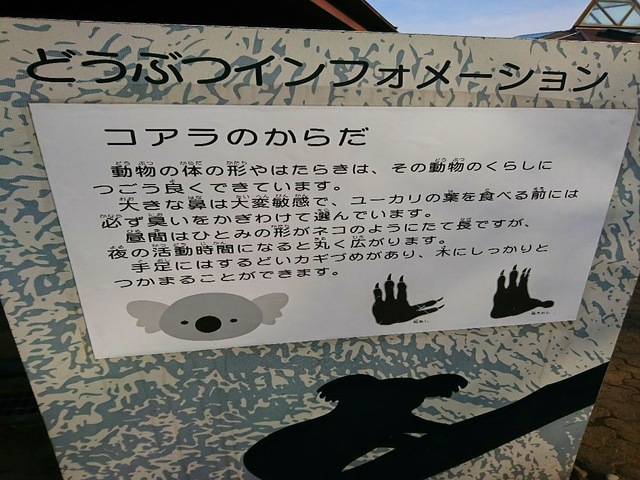 どうぶつインフォメーション
コアラのからだ
動物の体の形やはたらきは、その動物のくらしに
つごう良くできています。
大きな鼻は大変敏感で、ユーカリの葉を食べる前には
必ず臭いをかぎわけて選んでいます。
昼間はひとみの形がネコのようにたて長ですが、
夜の活動時間になると丸く広がります。
手足にはするどいカギづめがあり、木にしっかりと
つかまることができます。